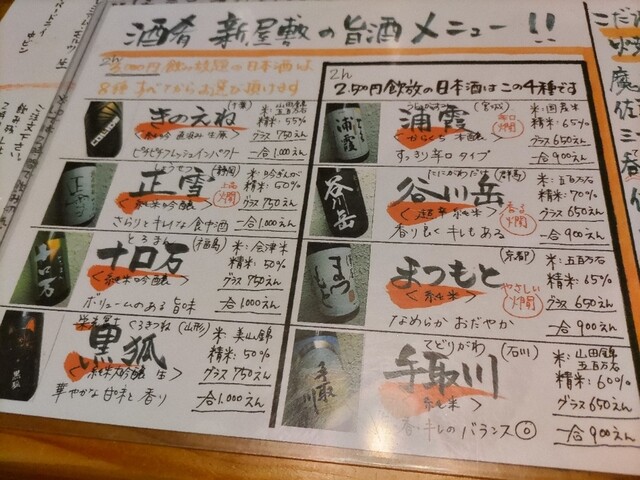 酒肴 新屋敷の旨酒メニュー!!
2h
3,000円飲み放題の日本酒は
8種すべてからお選び頂けます
きのえね
(千葉)
米:山田錦
五百万石
精米:55%
グラス750えん
一合1,000えん
ピチピチフレッシュインパクト
正雪
(静岡)
<純米吟醸>
精米:50%
グラス750えん
一合1,000えん
さらりとキレイな食中酒
とろまん
十口万
(福島)
<純米吟醸>
米:会津米
精米:50%
グラス750えん
一合1,000えん
ボリュームのある旨味
くろきつね(山形)
黒狐
<純米大吟醸 生>
米:美山錦
精米:50%
グラス750えん
一合1,000えん
華やかな甘味と香り
2h
2,50円飲放の日本酒はこの4種です
浦霞
(宮城)
辛口
燗
<からくち 本醸>
米:国産米
精米:65%
グラス650えん
一合900えん
すっきり辛口タイプ
たにがわだけ(群馬)
谷川岳
<超辛 純米>
香る
燗
米:五百万石
精米:70%
グラス650えん
一合900えん
香り良くキレもある
よつもと
(京都)
<純米>
やさしい
燗
米:五百万石
精米:65%
グラス650えん
一合900えん
なめらか おだやか
てどりがわ
(石川)
手取川
<純米>
米:山田錦
五百万石
精米:60%
グラス650えん
一合900えん
香・キレのバランス◎
こだ
魔
佐
三